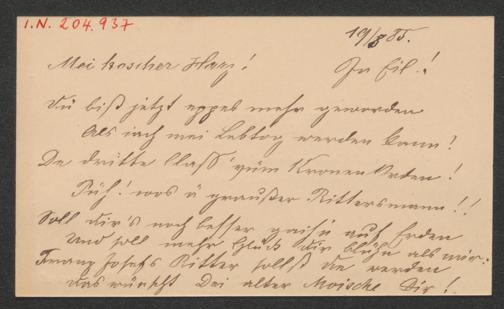 I.N. 204.937
19/8 85.
Mei koscher Harz!
In Eil!
Du bist jetzt eppes mehr geworden
Als iach mei Lebtog werden kann!
De dritte Class' züm Kronen Orden!
Püh! wos ü graußer Rittersmann!!
Soll dir's noch besser gaih'n auf Erden
Und soll mehr Glück dir blüh'n als mir:
Franz Josefs Ritter sollst de werden
das wünscht Dei alter Moische Dir!